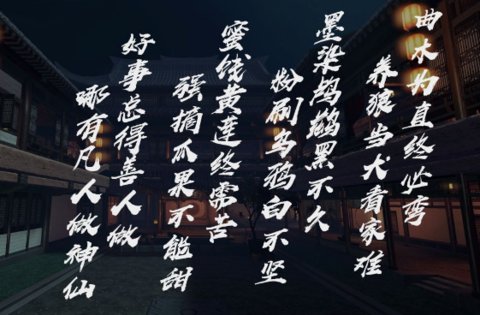 曲木为直终必弯
养狼当犬看家难
墨染鸬鹚黑不久
粉刷乌鸦白不坚
蜜饯黄莲终需苦
强摘瓜果不能甜
好事总得善人做
哪有凡人做神仙